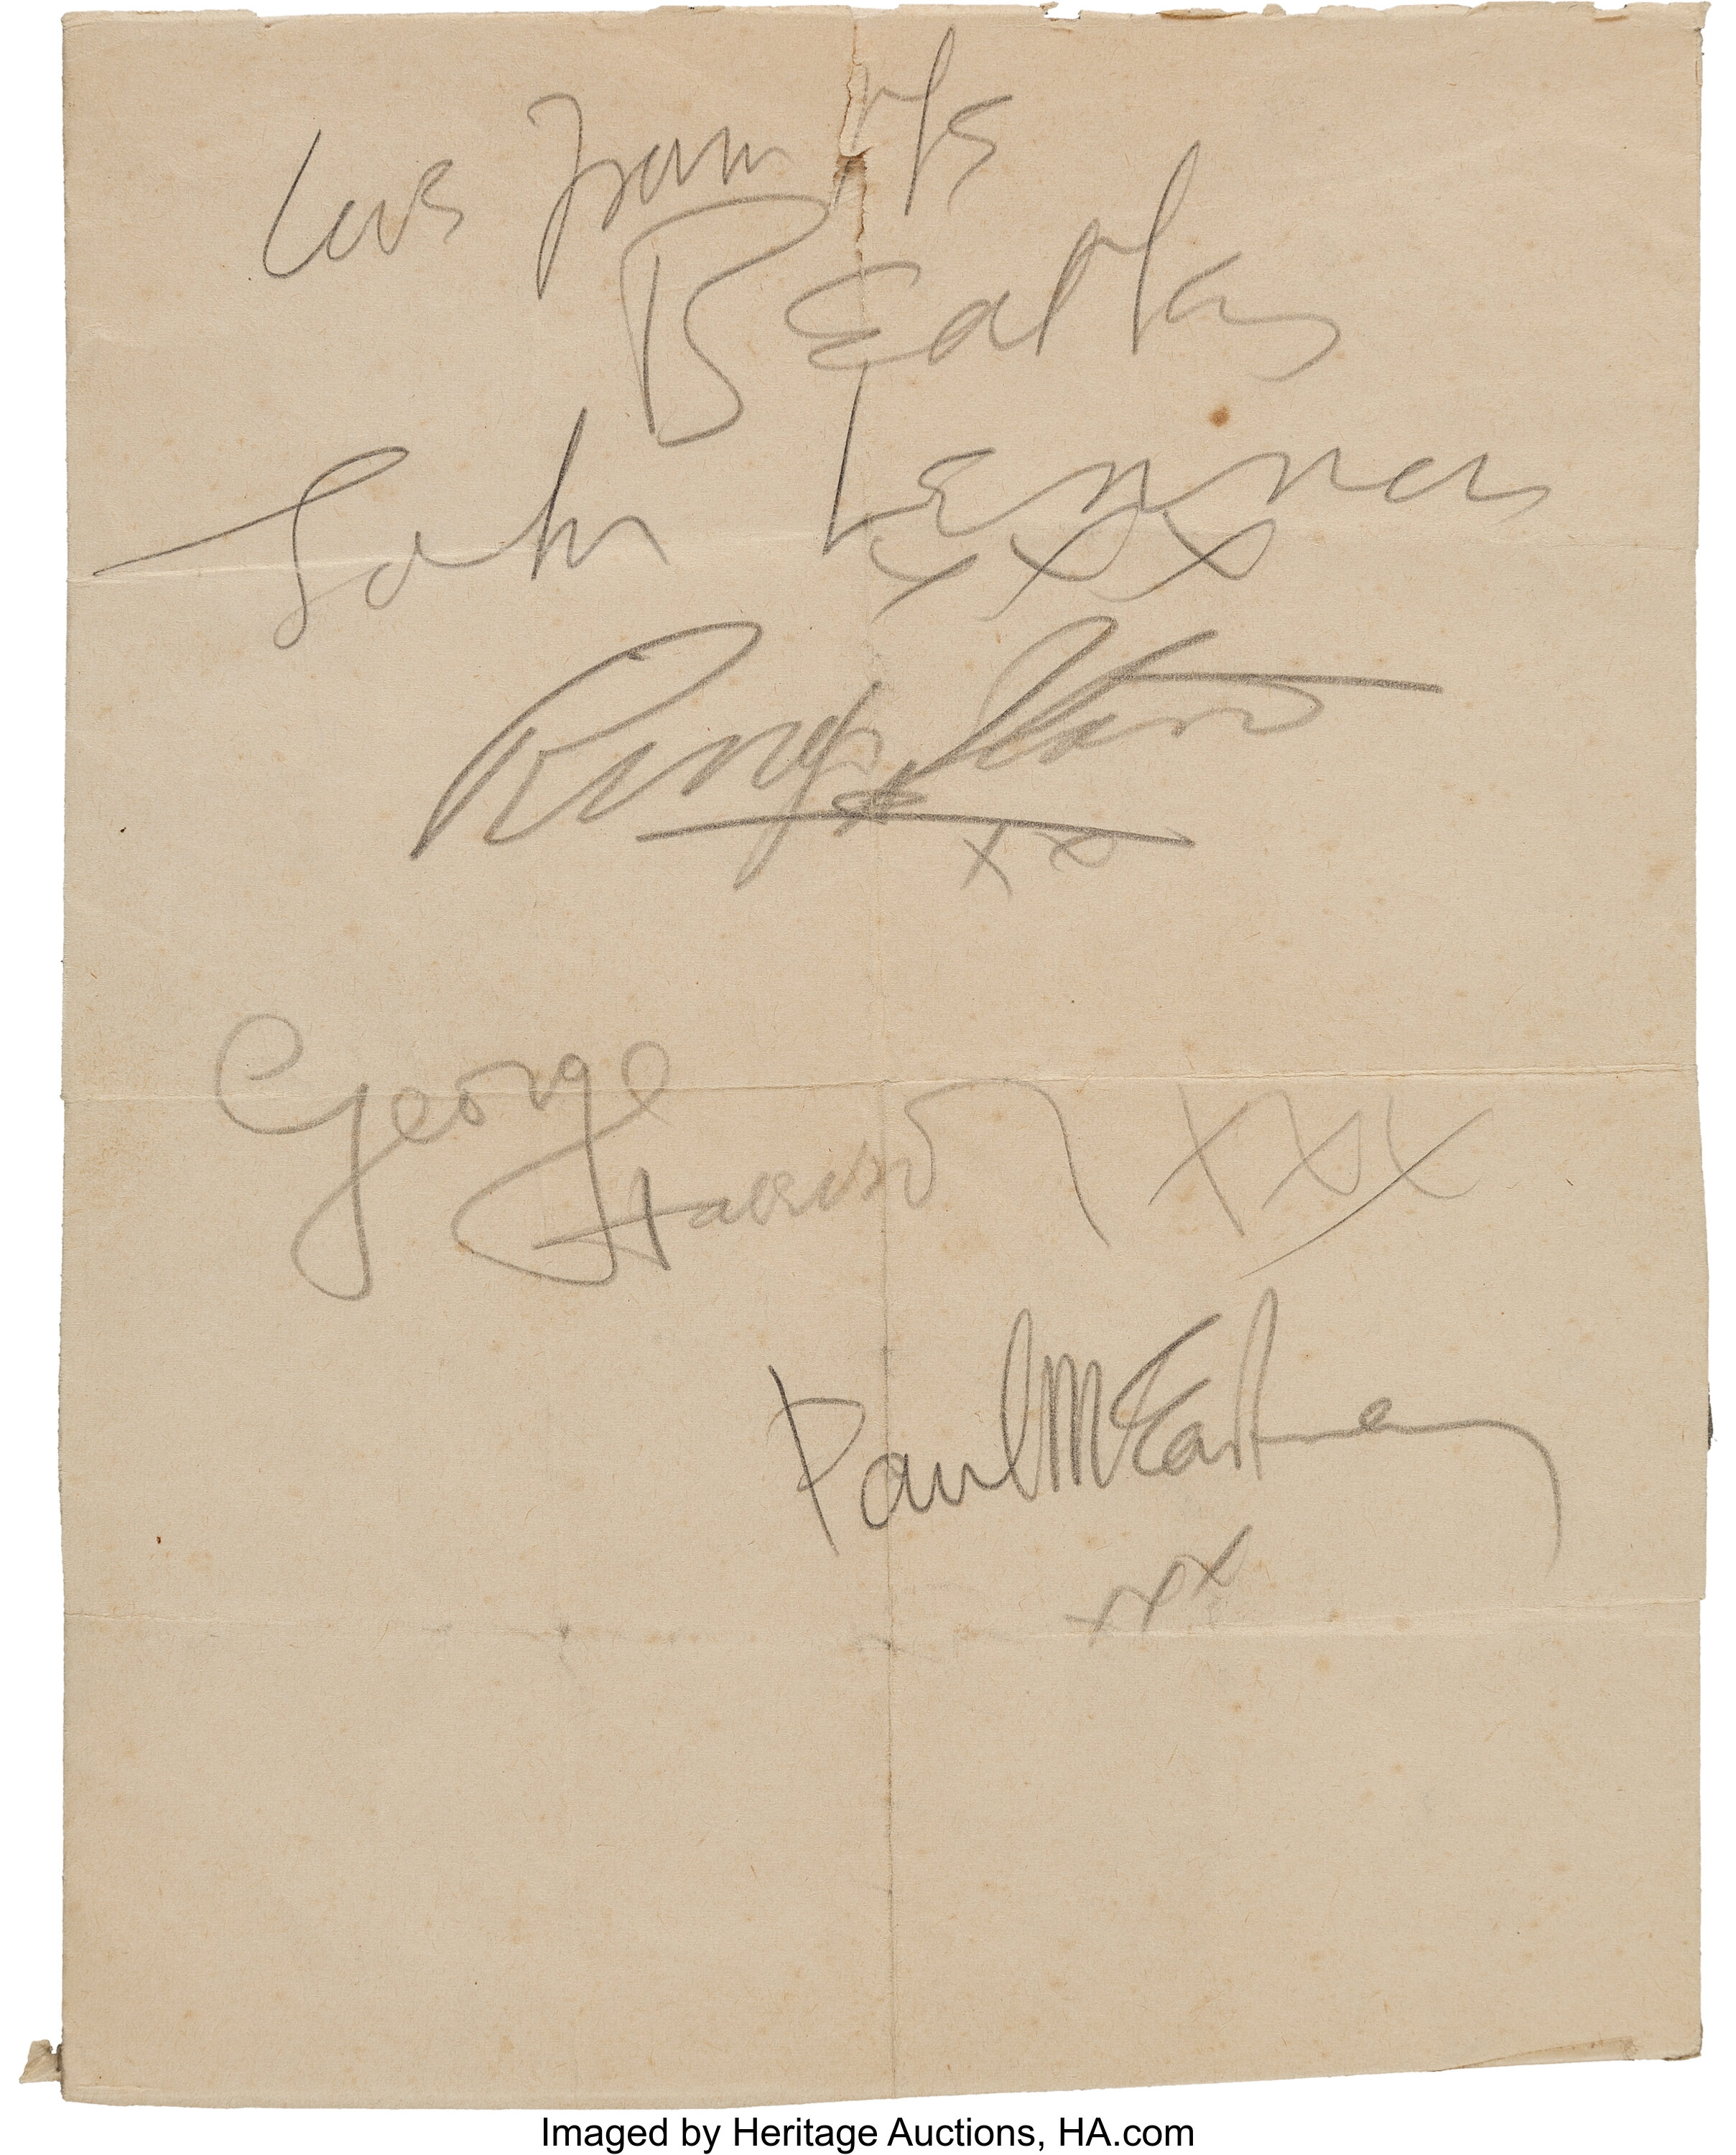 Love from the
Beatles
John Lennon
xxx
Ringo Starr
xx
George
Harrison xxx
Paul McCartney
xxx
Imaged by Heritage Auctions, HA.com